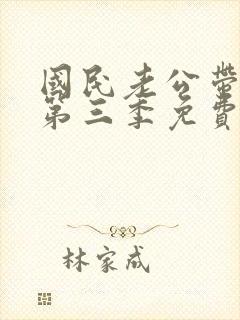 國民老公帶
第三季免費
林家成